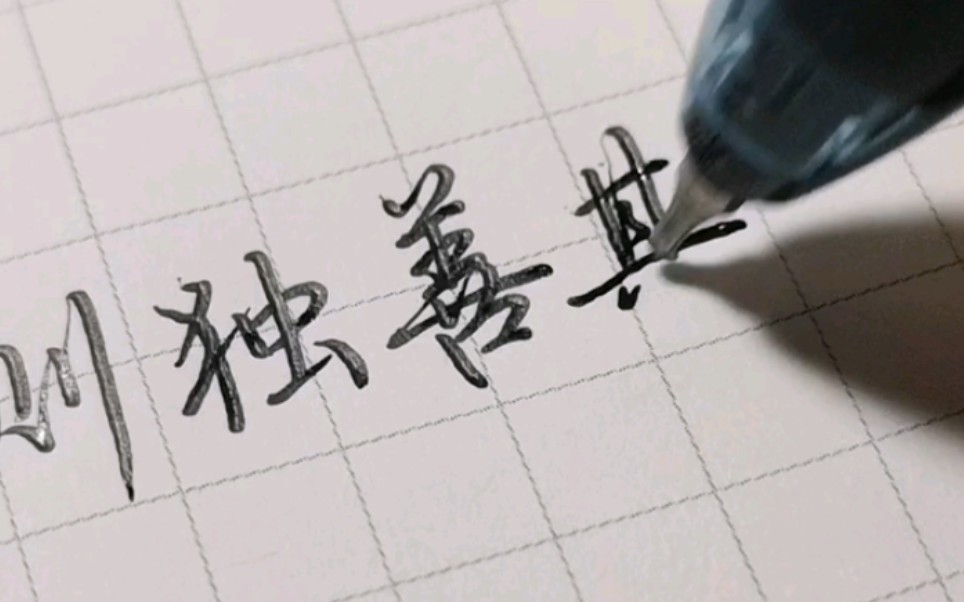 则独善其